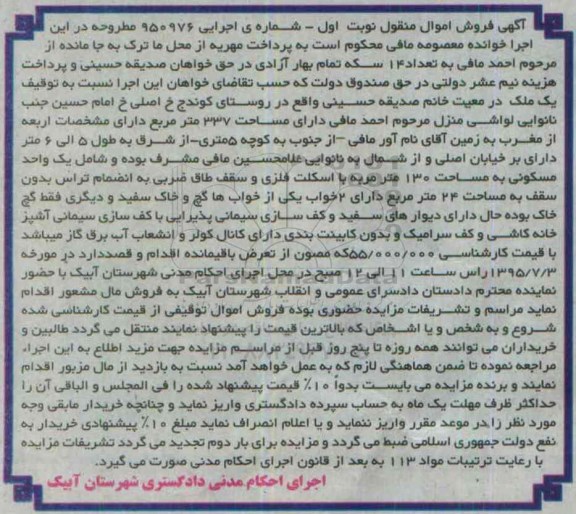 آگهی فروش اموال منقول نوبت اول - شماره ی اجرایی ۹۵۰۹۷۶ مطروحه در این
اجرا خوانده معصومه مافی محکوم است به پرداخت مهریه از محل ما ترک به جا مانده از
مرحوم احمد مافی به تعداد۱۴ سکه تمام بهار آزادی در حق خواهان صدیقه حسینی و پرداخت
هزینه نیم عشر دولتی در حق صندوق دولت که حسب تقاضای خواهان این اجرا نسبت به توقیف
یک ملک در معیت خانم صدیقه حسینی واقع در روستای کوندج خ اصلی خ امام حسین جنب
نانوایی لواشی منزل مرحوم احمد مافی دارای مساحت ۳۳۷ متر مربع دارای مشخصات اربعه
از مغرب به زمین آقای نام آور مافی –از جنوب به کوچه ۵متری–از شرق به طول ۵ الی ۶ متر
دارای بر خیابان اصلی و از شمال به نانوایی غلامحسین مافی مشرف بوده و شامل یک واحد
مسکونی به مساحت ۱۳۰ متر مربع با اسکلت فلزی و سقف طاق ضربی به انضمام تراس بدون
سقف به مساحت ۲۴ متر مربع دارای ۲خواب یکی از خواب ها گچ و خاک سفید و دیگری فقط گچ
خاک بوده حال دارای دیوار های سفید و کف سازی سیمانی پذیرایی با کف سازی سیمانی آشپز
خانه کاشی و کف سرامیک و بدون کابینت بندی دارای کانال کولر و انشعاب آب برق گاز میباشد
با قیمت کارشناسی ۵۵/۰۰۰/۰۰۰که مصون از تعرض باقیمانده اقدام و قصددارد در مورخه
۱۳۹۵/۷/۳راس ساعت ۱۱ الی ۱۲ صبح در محل اجرای احکام مدنی شهرستان آبیک با حضور
نماینده محترم دادستان دادسرای عمومی و انقلاب شهرستان آبیک به فروش مال مشعور اقدام
نماید مراسم و تشریفات مزایده حضوری بوده فروش اموال توقیفی از قیمت کارشناسی شده
شروع و به شخص و یا اشخاص که بالاترین قیمت را پیشنهاد نمایند منتقل می گردد طالبین و
خریداران می توانند همه روزه تا پنج روز قبل از مراسم مزایده جهت مزید اطلاع به این اجراء
مراجعه نموده تا ضمن هماهنگی لازم که به عمل خواهد آمد نسبت به بازدید از مال مزبور اقدام
نمایند و برنده مزایده می بایست بدوا ۱۰٪ قیمت پیشنهاد شده را فی المجلس و الباقی آن را
حداکثر ظرف مهلت یک ماه به حساب سپرده دادگستری واریز نماید و چنانچه خریدار مابقی وجه
مورد نظر را در موعد مقرر واریز ننماید و یا اعلام انصراف نماید مبلغ ۱۰٪ پیشنهادی خریدار به
نفع دولت جمهوری اسلامی ضبط می گردد و مزایده برای بار دوم تجدید می گردد تشریفات مزایده
با رعایت ترتیبات مواد ۱۱۳ به بعد از قانون اجرای احکام مدنی صورت می گیرد.
اجرای احکام مدنی دادگستری شهرستان آبیک